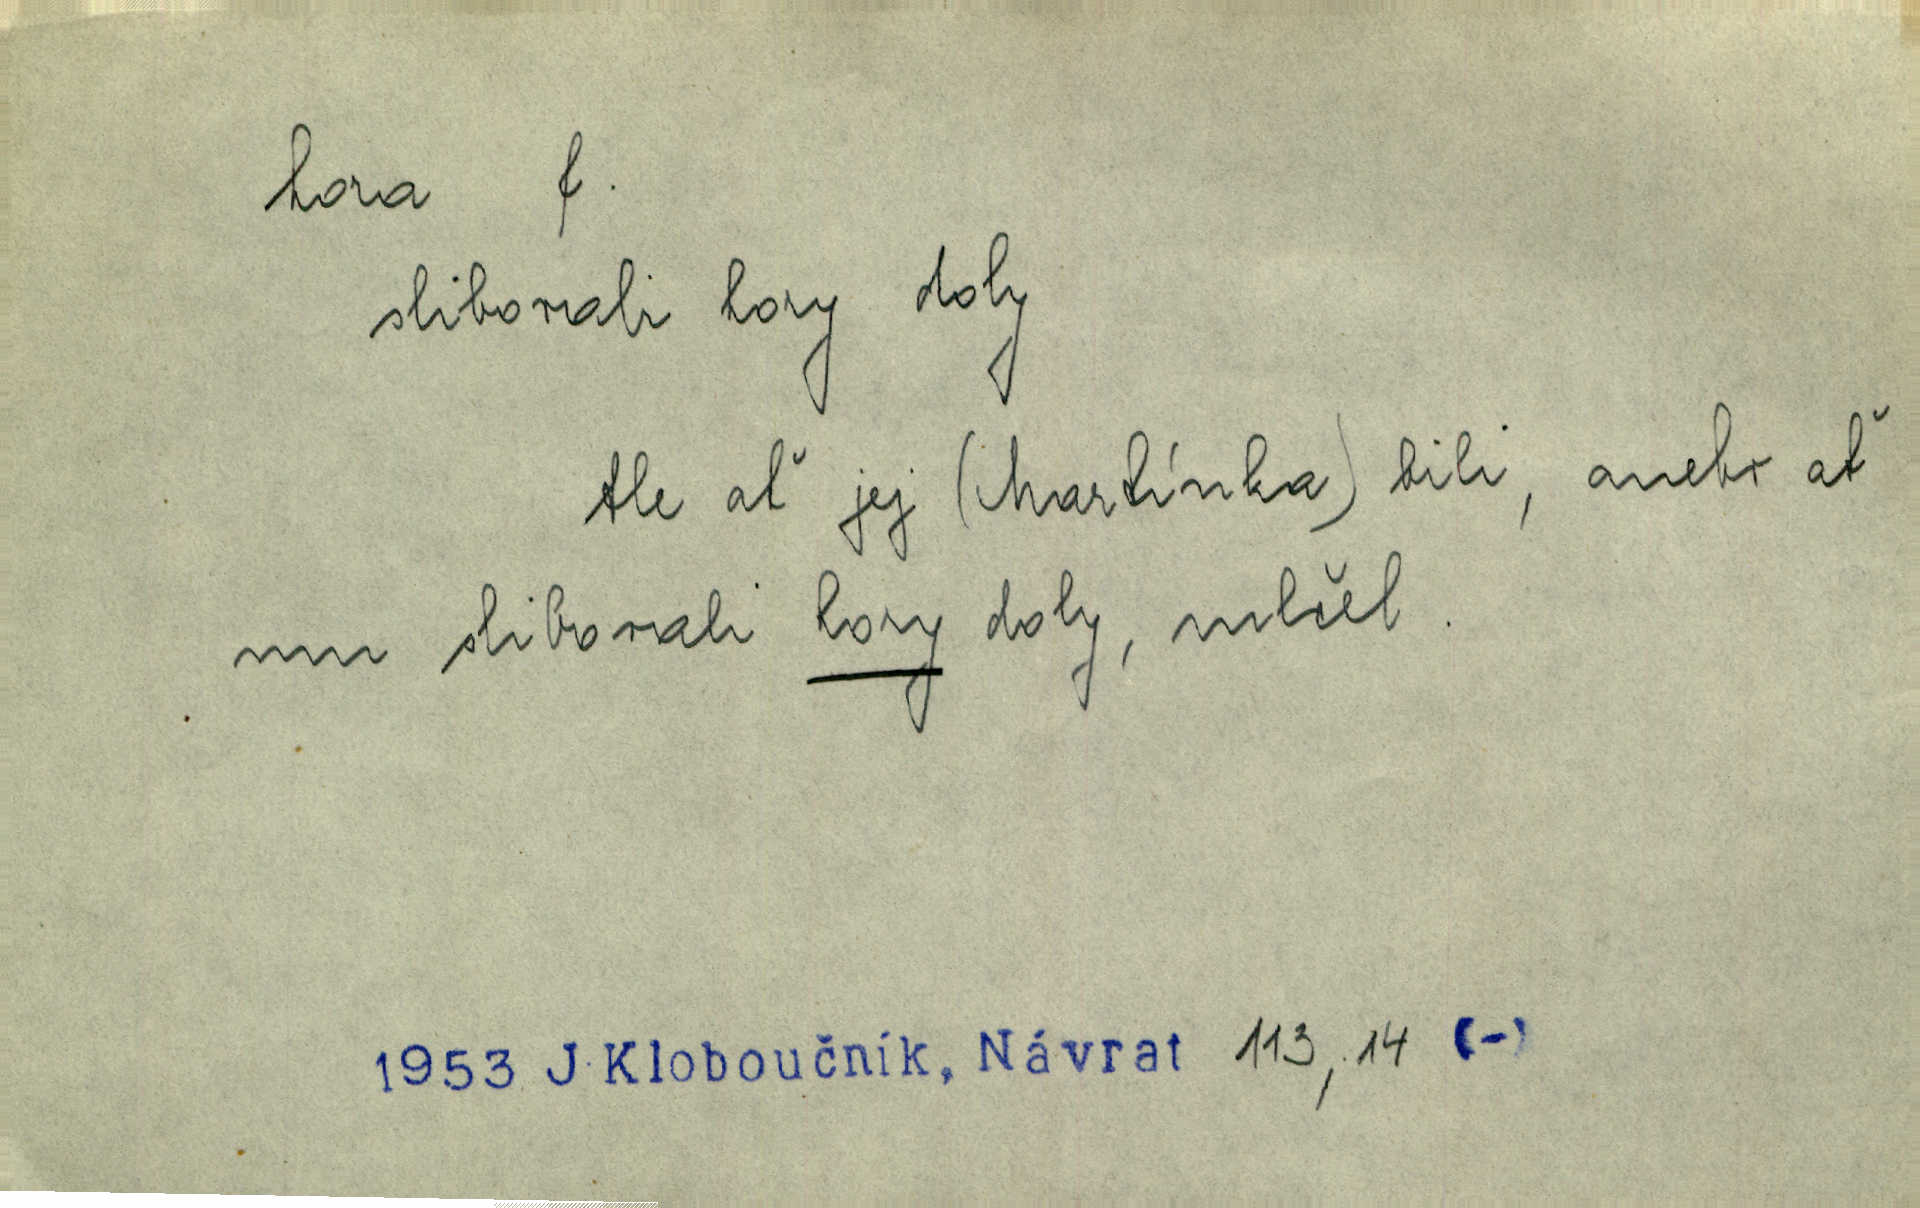 hora f.
slibovali hory doly
Ale ať jej (Martínka) bili, anebo ať
mu slibovali hory doly, mlčel.
1953 J. Kloboučník, Návrat 113,14 (-)